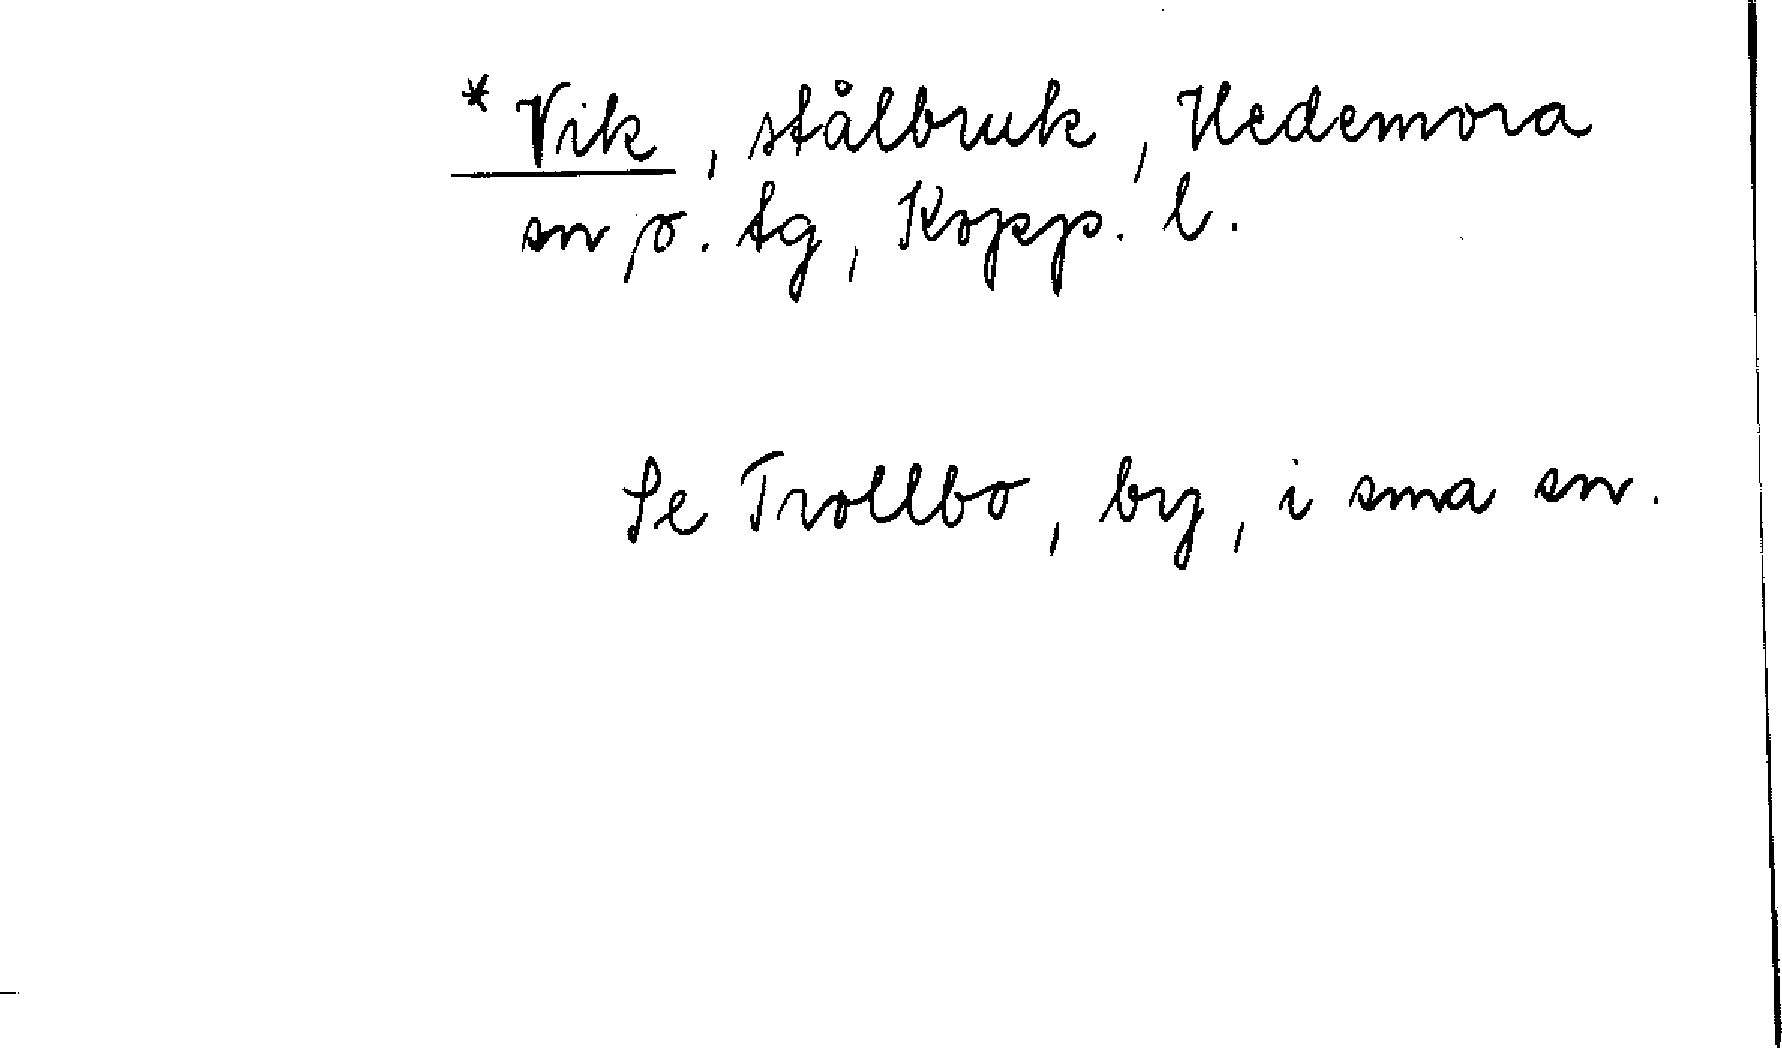 *Vik, stålbruk, Hedemora
sn o. tg, Kopp. l.
Se Trollbo, by, i sma sn.